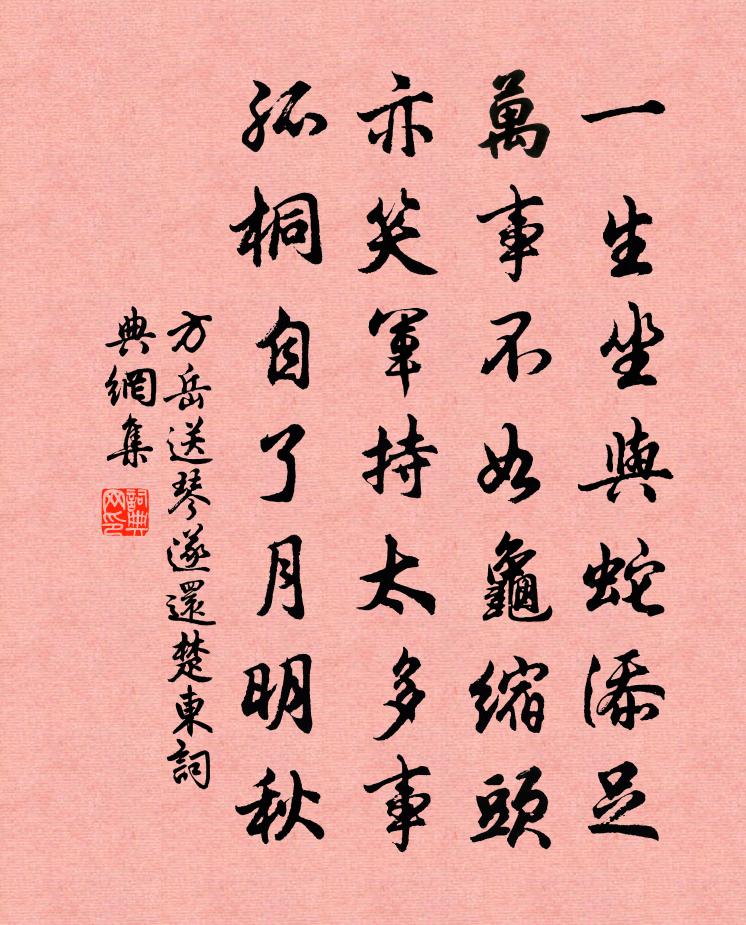 一生坐與蛇添足
萬事不如龜縮頭
亦笑軍持太多事
孤桐自了月明秋
方岳送琴遂還楚東詞
典網集
詞典網印